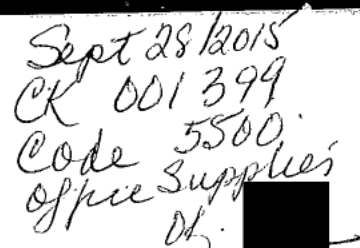 Sept 28/2015
CK 001399
Code 5500.
Office Supplies
Ok.